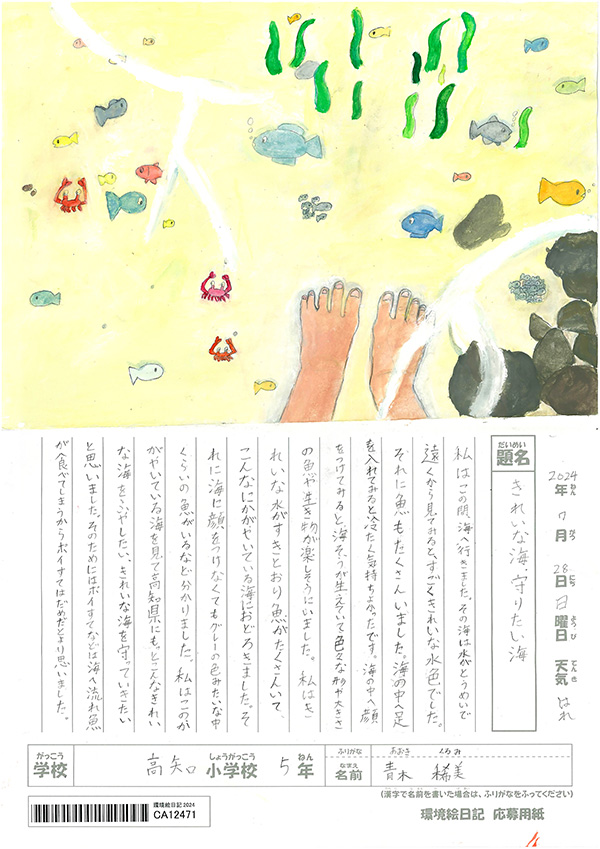 2024年 7月 28日 日曜日 天気 はれ
ねん がつ にち ようび てんき
だいめい
題名
きれいな海、守りたい海
私はこの間、海へ行きました。その海は水がとうめいで
遠くから見てみると、すごくきれいな水色でした。
それに魚もたくさんいました。海の中へ足
を入れてみると冷たく気持ちよかったです。海の中へ顔
をつけてみると、海そうが生えていて色々な形や大きさ
の魚や生き物が楽しそうにいました。私はき
れいな水がすきとおり魚がたくさんいて、
こんなにかがやいている海におどろきました。そ
れに海に顔をつけなくてもグレーの色みたいな中
くらいの魚がいるなど分かりました。私はこのか
がやいている海を見て高知県にもっとこんなきれい
な海をふやしたい、きれいな海を守っていきたい
と思いました。そのためにはポイすてなどは海へ流れ魚
が食べてしまうからポイすてはだめだとより思いました。
がっこう
学校
高知 小学校 5年
しょうがっこう ねん
ふりがな あおき くるみ
なまえ
名前 青木 稀美
(漢字で名前を書いた場合は、ふりがなをふってください)
環境絵日記 2024
CA12471
環境絵日記 応募用紙